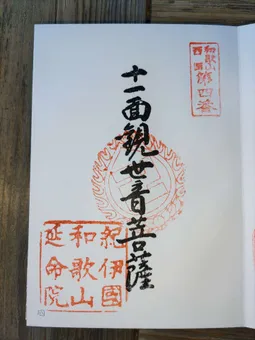 和歌
西国
第四番
十一面観世音菩薩
紀伊國
和歌山
延命院